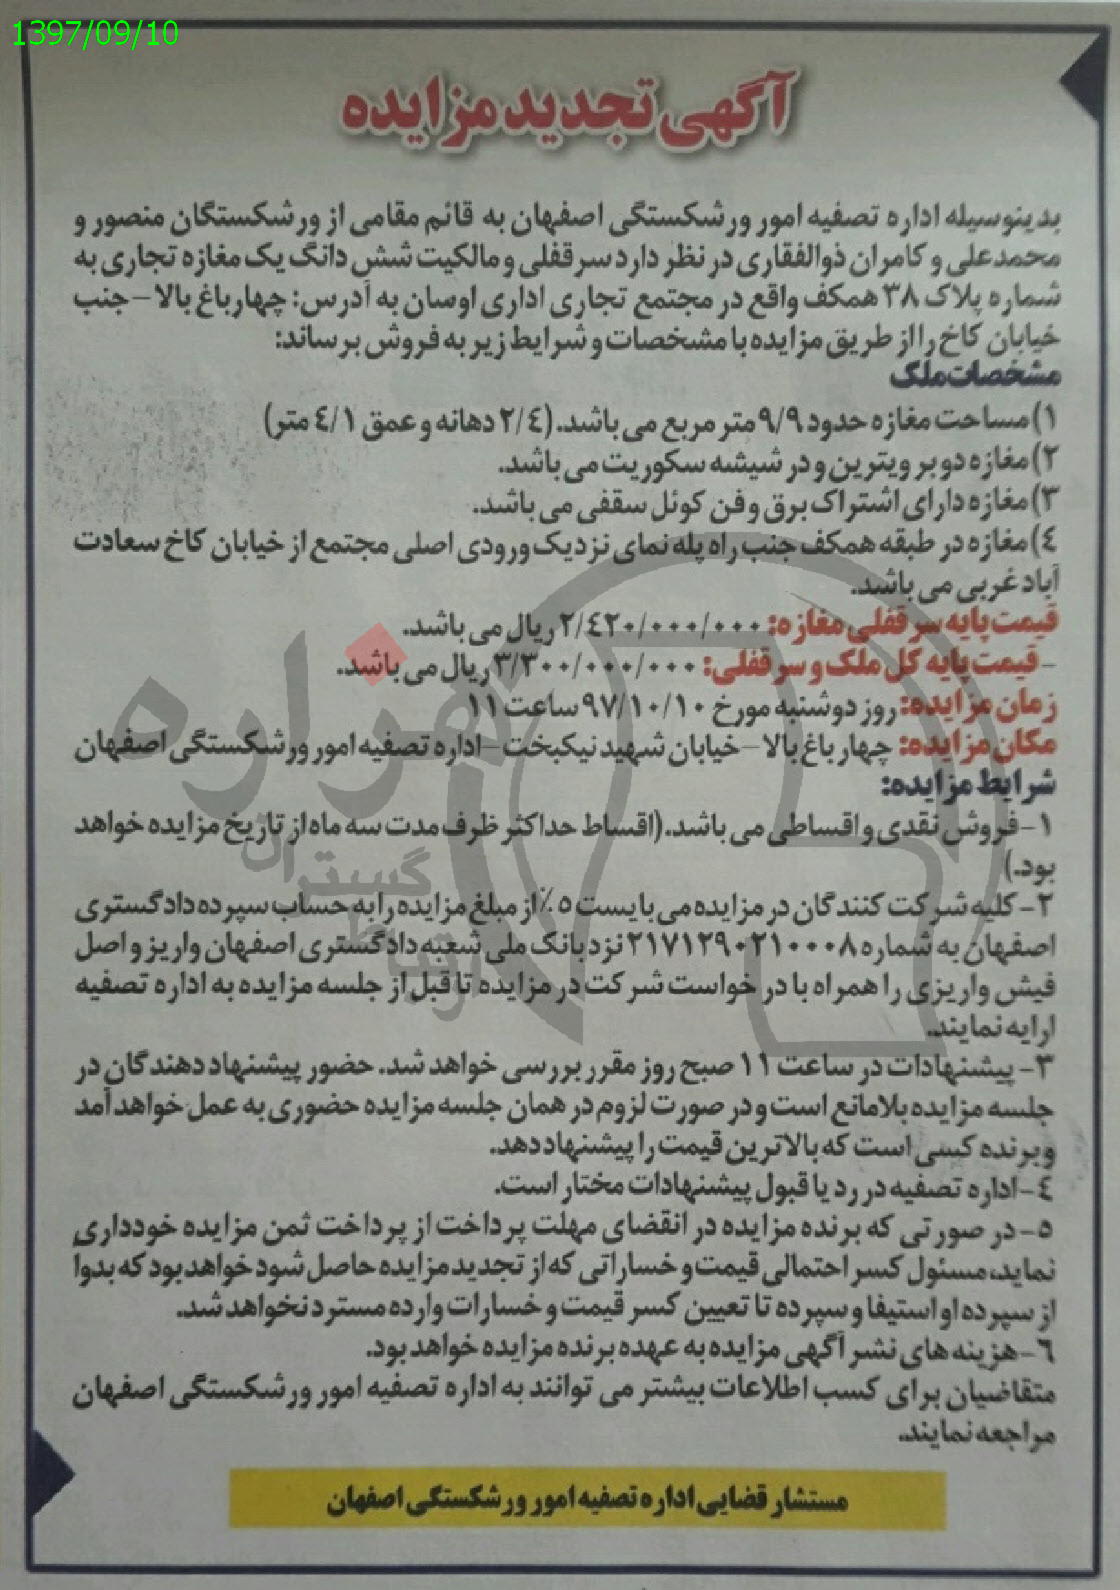 1397/09/10
آگهی تجدید مزایده
بدینوسیله اداره تصفیه امور ورشکستگی اصفهان به قائم مقامی از ورشکستگان منصور و
محمدعلی و کامران ذوالفقاری در نظر دارد سرقفلی و مالکیت شش دانگ یک مغازه تجاری به
شماره پلاک ۳۸ همکف واقع در مجتمع تجاری اداری اوسان به آدرس: چهارباغ بالا – جنب
خیابان کاخ را از طریق مزایده با مشخصات و شرایط زیر به فروش برساند:
مشخصات ملک
۱) مساحت مغازه حدود ۹/۹ متر مربع می باشد. (۲/٤ دهانه و عمق ٤/۱ متر)
۲) مغازه دو بر ویترین و در شیشه سکوریت می باشد.
۳) مغازه دارای اشتراک برق و فن کوئل سقفی می باشد.
٤) مغازه در طبقه همکف جنب راه پله نمای نزدیک ورودی اصلی مجتمع از خیابان کاخ سعادت
آباد غربی می باشد.
قیمت پایه سرقفلی مغازه: ۲/٤۲۰/۰۰۰/۰۰۰ ریال می باشد.
- قیمت پایه کل ملک و سرقفلی: ۳/۳۰۰/۰۰۰/۰۰۰ ریال می باشد.
زمان مزایده: روز دوشنبه مورخ ۹۷/۱۰/۱۰ ساعت ۱۱
مکان مزایده: چهارباغ بالا – خیابان شهید نیکبخت – اداره تصفیه امور ورشکستگی اصفهان
شرایط مزایده:
۱- فروش نقدی و اقساطی می باشد. (اقساط حداکثر ظرف مدت سه ماه از تاریخ مزایده خواهد
بود.)
۲- کلیه شرکت کنندگان در مزایده می بایست ۵٪ از مبلغ مزایده را به حساب سپرده دادگستری
اصفهان به شماره ۲۱۷۱۲۹۰۲۱۰۰۰۸ نزد بانک ملی شعبه دادگستری اصفهان واریز و اصل
فیش واریزی را همراه با درخواست شرکت در مزایده تا قبل از جلسه مزایده به اداره تصفیه
ارایه نمایند.
۳- پیشنهادات در ساعت ۱۱ صبح روز مقرر بررسی خواهد شد. حضور پیشنهاد دهندگان در
جلسه مزایده بلامانع است و در صورت لزوم در همان جلسه مزایده حضوری به عمل خواهد آمد
و برنده کسی است که بالاترین قیمت را پیشنهاد دهد.
٤- اداره تصفیه در رد یا قبول پیشنهادات مختار است.
۵- در صورتی که برنده مزایده در انقضای مهلت پرداخت از پرداخت ثمن مزایده خودداری
نماید، مسئول کسر احتمالی قیمت و خساراتی که از تجدید مزایده حاصل شود خواهد بود که بدوا
از سپرده او استیفا و سپرده تا تعیین کسر قیمت و خسارات وارده مسترد نخواهد شد.
٦- هزینه های نشر آگهی مزایده به عهده برنده مزایده خواهد بود.
متقاضیان برای کسب اطلاعات بیشتر می توانند به اداره تصفیه امور ورشکستگی اصفهان
مراجعه نمایند.
مستشار قضایی اداره تصفیه امور ورشکستگی اصفهان
هزاره
گستران